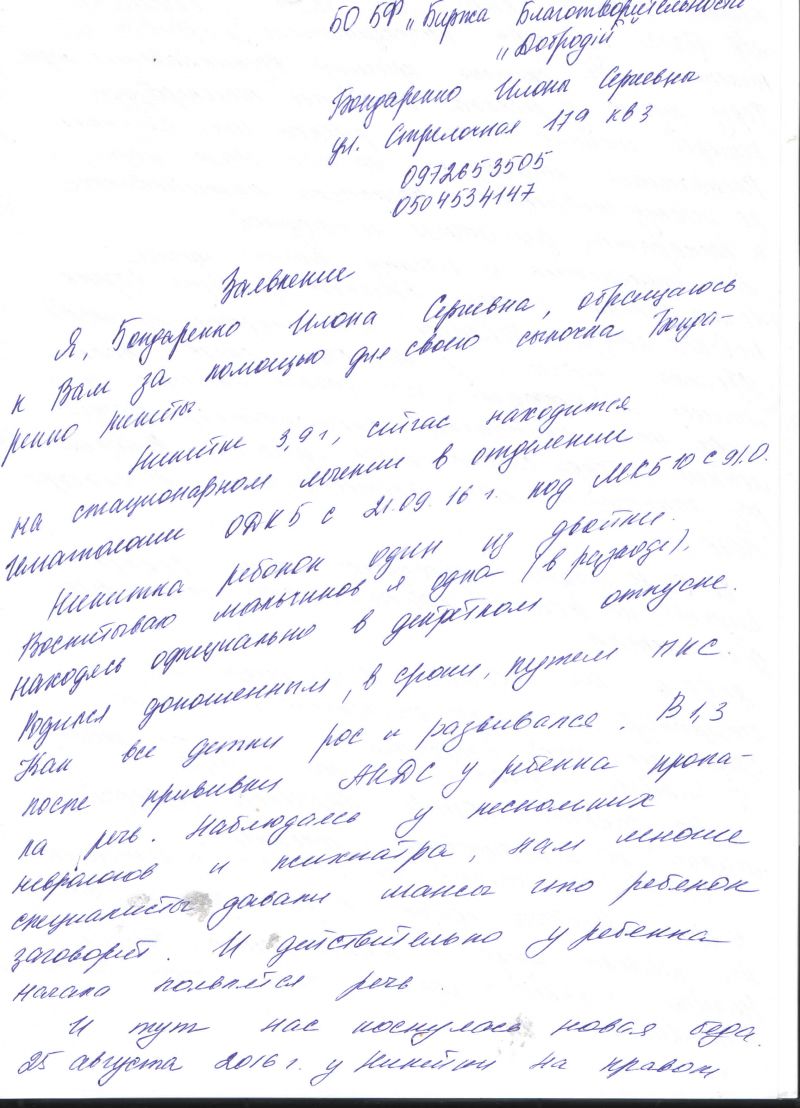 БО БФ „Биржа Благотворительности
„Добродій"
Бондаренко Илоны Сергиевны
ул. Стрелочная 179 кв 3
0972653505
0504534147
Заявление
Я, Бондаренко Илона Сергиевна, обращаюсь
к Вам за помощью для своего сыночка Бонда-
ренко Никиты.
Никитке 3,9 г, сейчас находится
на стационарном лечении в отделении
гематологии ОДКБ с 21.09.16 г. под МКБ 10 С 91.0.
Никитка ребенок один из двойни.
Воспитываю мальчиков я одна (в разводе),
находясь официально в декретном отпуске.
Родился доношенным, в сроки, путем ПКС.
Как все детки рос и развивался. В 1,3
после прививки АКДС у ребенка пропа-
ла речь. Наблюдаясь у нескольких
неврологов и психиатра, нам многие
специалисты давали шансы что ребенок
заговорит. И действительно у ребенка
начала появлятся речь.
И тут нас коснулась новая беда.
25 августа 2016 г. у Никитки на правом